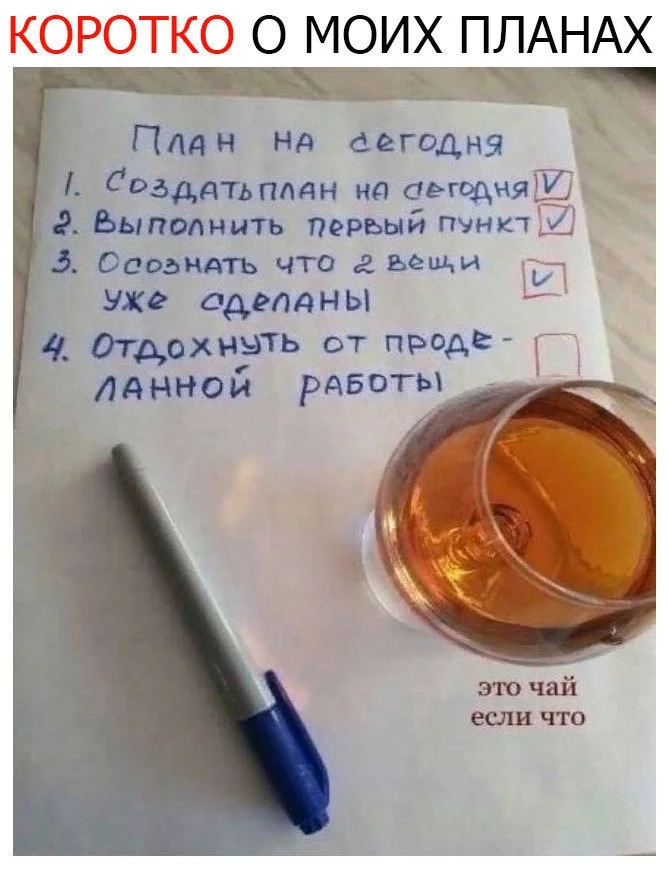 КОРОТКО О МОИХ ПЛАНАХ
План на сегодня
1. Создать план на сегодня
2. Выполнить первый пункт
3. Осознать что 2 вещи
уже сделаны
4. Отдохнуть от проде-
ланной работы
это чай
если что